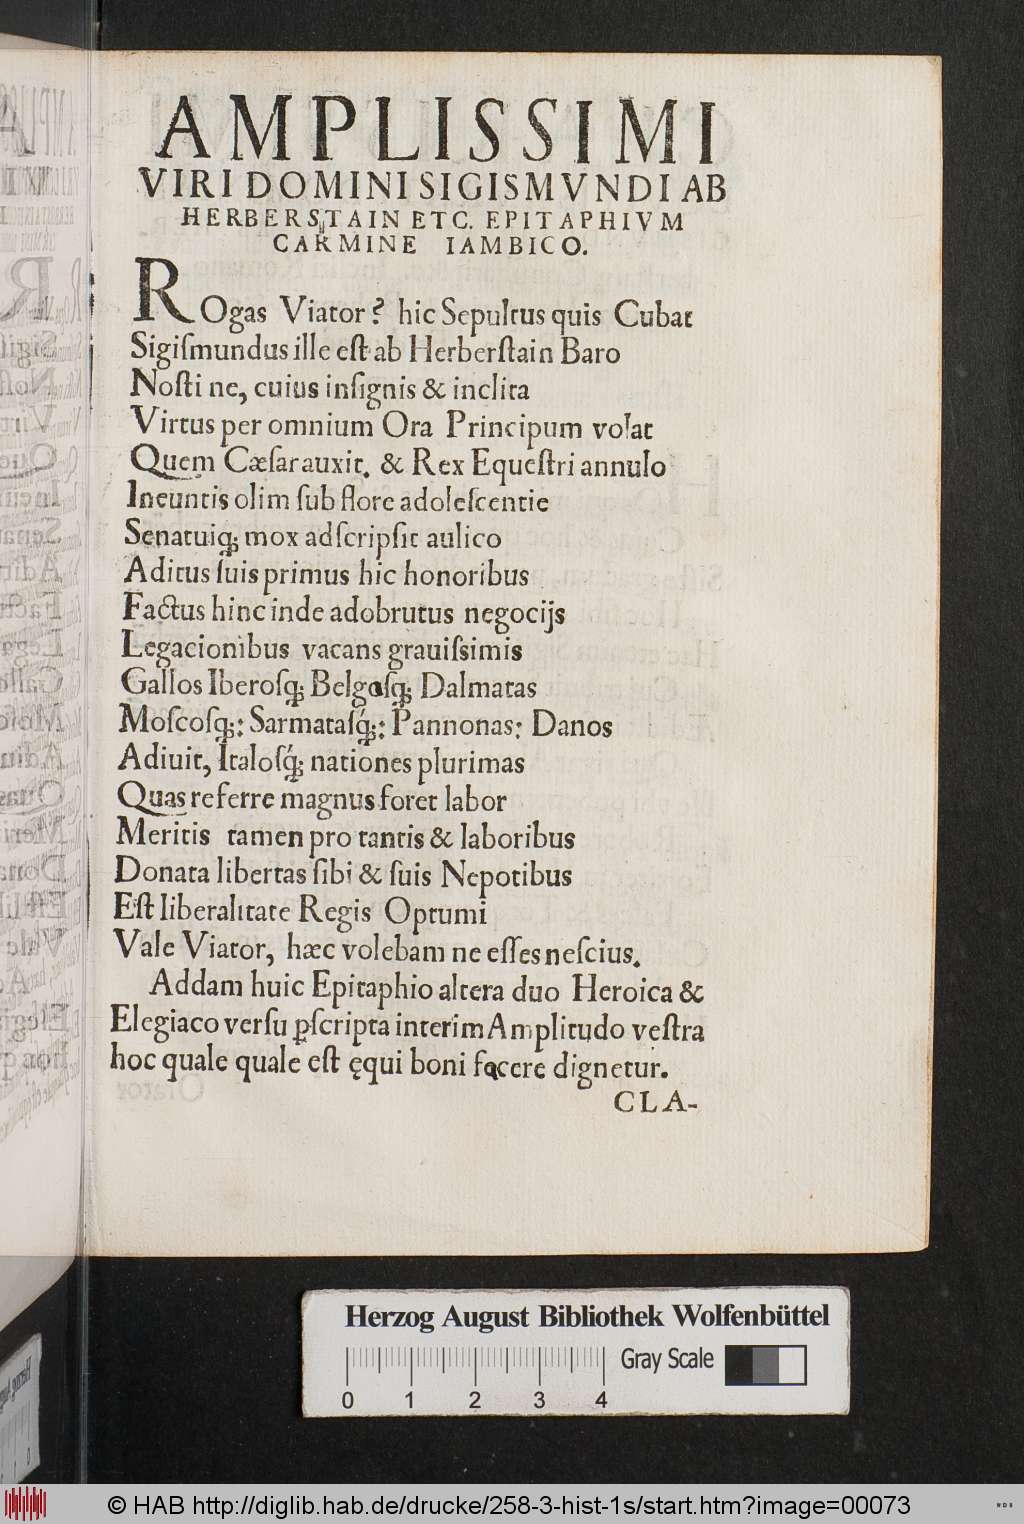 AMPLISSIMI
VIRI DOMINI SIGISMVNDI AB
HERBERSTAIN ETC. EPITAPHIVM
CARMINE IAMBICO.
ROgas Viator? hic Sepultus quis Cubat
Sigiſmundus ille eſt ab Herberſtain Baro
Noſti ne, cuius inſignis & inclita
Virtus per omnium Ora Principum volat
Quem Cæſar auxit. & Rex Equeſtri annulo
Ineuntis olim ſub flore adoleſcentie
Senatuiq; mox adſcripſit aulico
Aditus ſuis primus hic honoribus
Factus hinc inde adobrutus negocijs
Legacionibus vacans grauiſsimis
Gallos Iberoſq; Belgasſq; Dalmatas
Moſcoſq;: Sarmataſq́;: Pannonas: Danos
Adiuit, Italoſq́; nationes plurimas
Quas referre magnus foret labor
Meritis tamen pro tantis & laboribus
Donata libertas ſibi & ſuis Nepotibus
Eſt liberalitate Regis Optumi
Vale Viator, hæc volebam ne eſſes neſcius.
Addam huic Epitaphio altera duo Heroica &
Elegiaco verſu ꝑſcripta interim Amplitudo veſtra
hoc quale quale eſt ęqui boni facere dignetur.
CLA-
Herzog August Bibliothek Wolfenbüttel
Gray Scale
0 1 2 3 4
© HAB http://diglib.hab.de/drucke/258-3-hist-1s/start.htm?image=00073